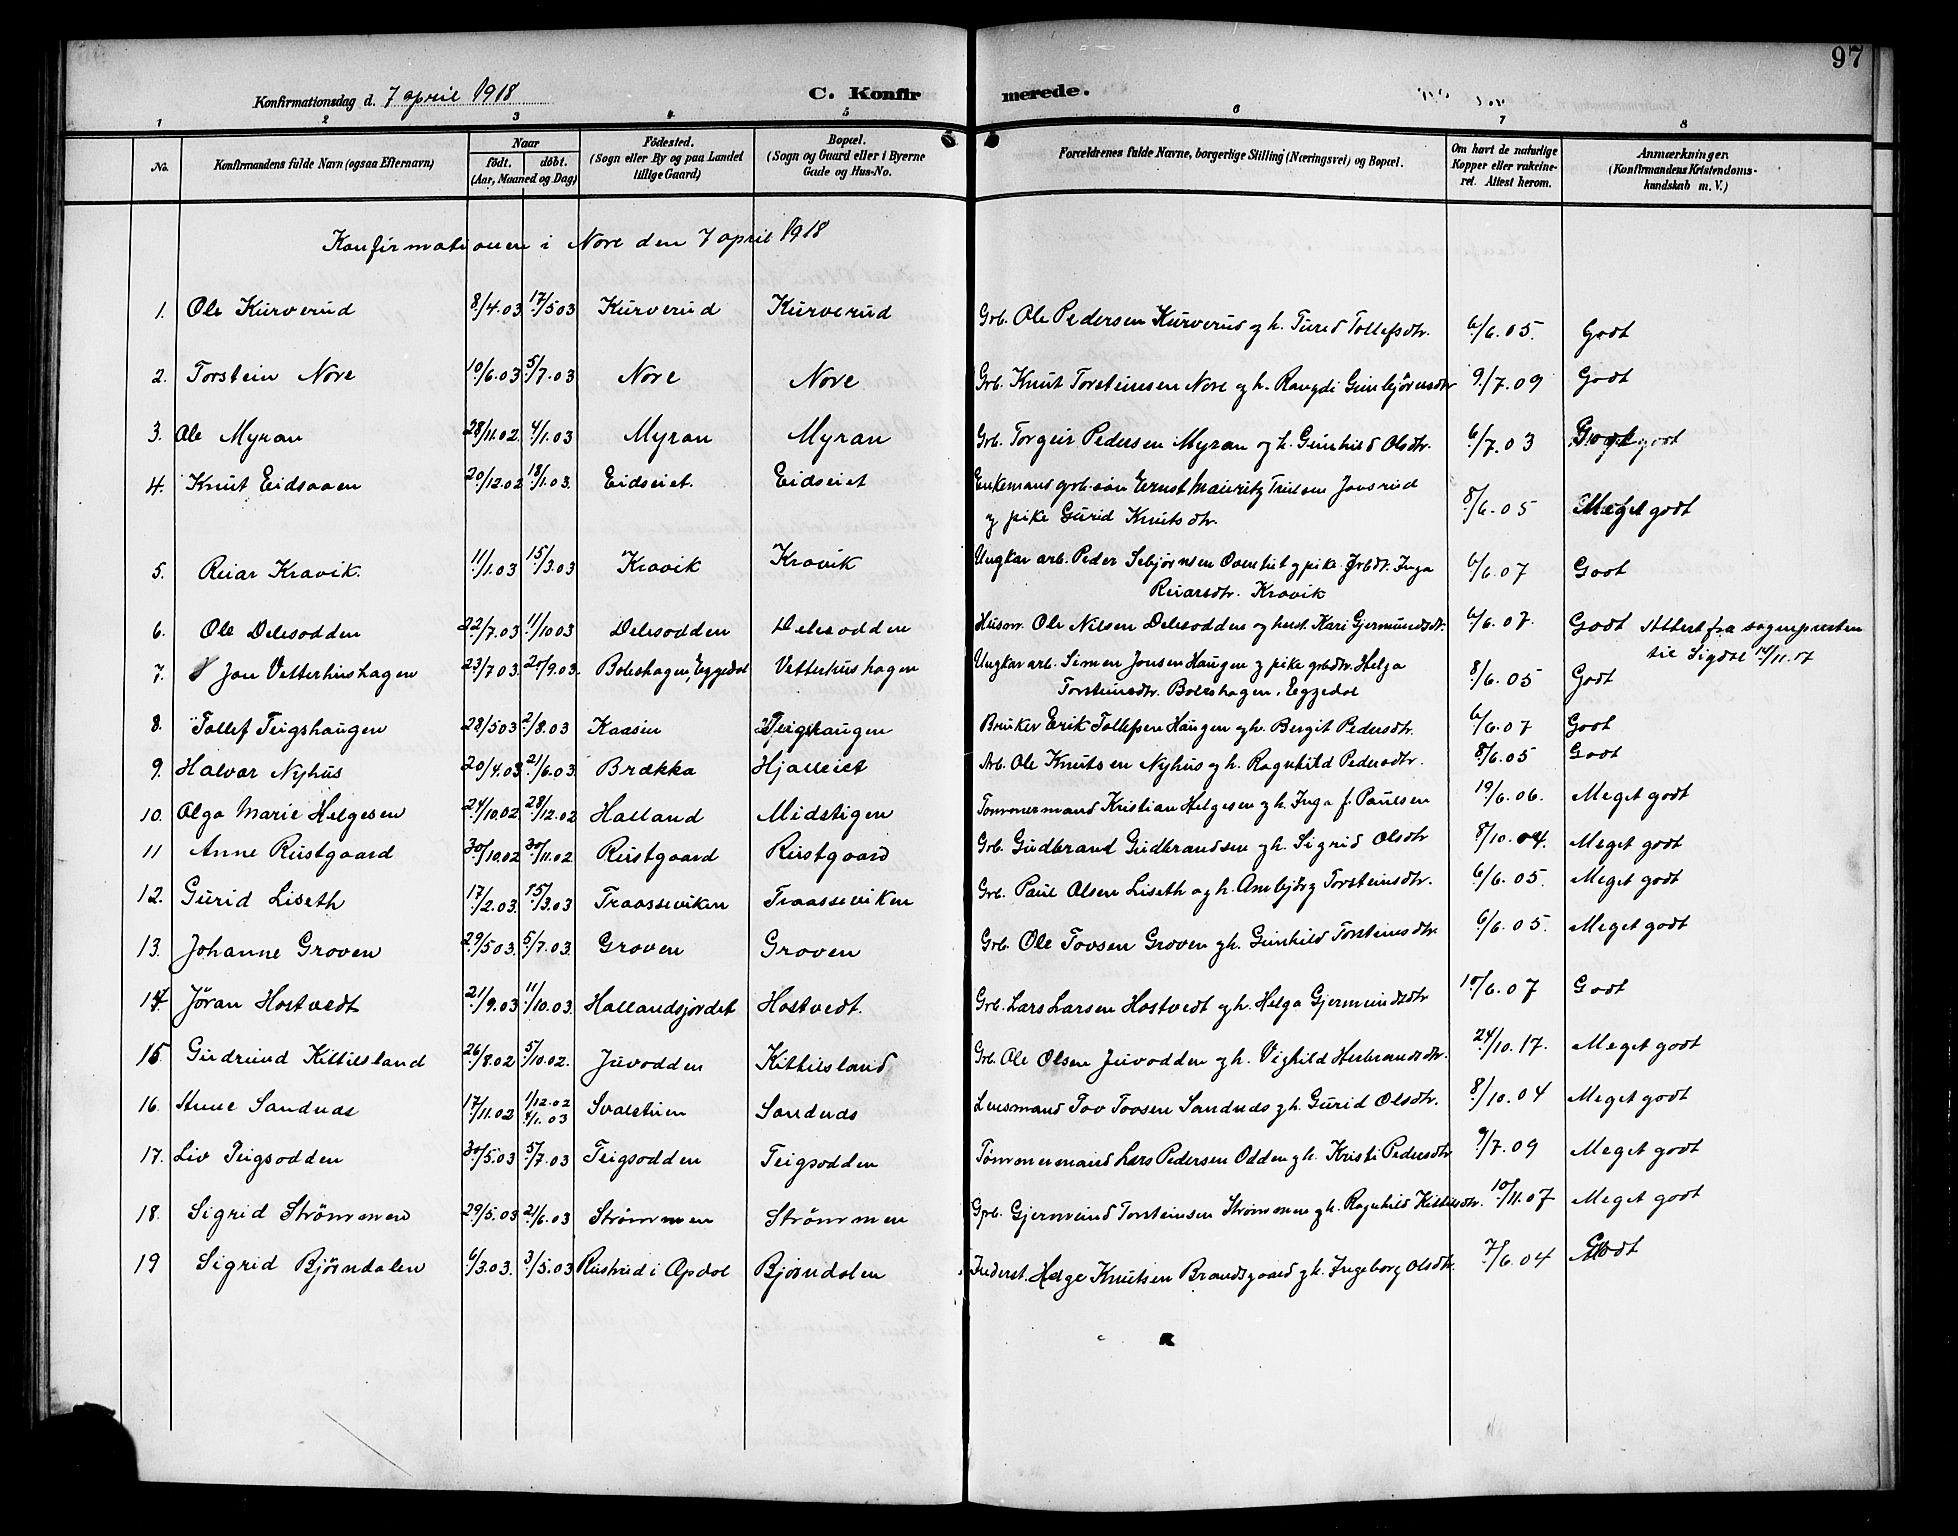 97
Konfirmationsdag d. 7 april 1918 C. Konfirmerede.
1 2 3 4 5 6 7 8
No. Konfirmandens fulde Navn (ogsaa Efternavn) Naar født. døbt. (Aar, Maaned og Dag) Fødested. (Sogn eller By og paa Landet tillige Gaard) Bopæl. (Sogn og Gaard eller i Byerne Gade og Hus-No. Forældrenes fulde Navne, borgerlige Stilling (Næringsvei) og Bopæl. Om havt de naturlige Kopper eller vakcineret. Attest herom. Anmærkninger (Konfirmandens Kristendomskundskab m. V.)
Konfirmationen i Nore den 7 april 1918
1. Ole Kurverud 8/4.03 17/5 03 Kurverud Kurverud Grb. Ole Pedersen Kurverud og h. Turid Tollefsdtr. 6/6.05. Godt
2. Torstein Nore 10/6.03 5/7.03 Nore Nore Grb. Knut Torsteinsen Nore og h. Rangdi Gunbjörnsdtr 9/7.09 Godt
3. Ole Myran 28/11.02 4/1.03 Myran Myran Grb. Torgeir Pedersen Myran og h. Gunhild Olsdtr. 6/7.03 godt
4. Knut Eidsaaen 20/12.02 18/1.03. Eidseiet. Eidseiet Enkemand grb.søn Ernst Mauritz Trulsen Jonsrud
og pike Gurid Knutsdtr. 8/6.05 Meget godt
5. Reiar Kravik. 11/1.03 15/3.03 Kravik Kravik Ungkar arb. Peder Sebjørnsen Oventet og pike grbdt. Inga
Reiarsdtr. Kravik 6/6.07 Godt
6. Ole Delesodden 22/7.03 11/10 03 Delesodden Delesodden Husm. Ole Nilsen Delesodden og hust Kari Gjermundsdt. 6/6.07. Godt Attest fra sogneprsten
til Sigdal 14/11.17
7. Jon Vetterhushagen 23/7 03 20/9.03. Boleshagen, Eggedal Vetterhushagen Ungkar arb. Simen Jonsen Haugen og pike grbdtr. Helga
Torsteinsdtr. Boleshagen, Eggedal 8/6.05 Godt
8. Tollef Teigshaugen 28/5 03 2/8.03 Kaasen Teigshaugen Bruker Erik Tollefsen Haugen og h. Bergit Pedersdtr. 6/6.07 Godt
9. Halvor Nyhus 20/4.03 21/6.03. Brækka Hjalleiet Arb. Ole Knutsen Nyhus og h. Ragnhild Pedersdtr. 8/6.05 Godt
10. Olga Marie Helgesen 24/10.02 28/12.02 Halland Midstigen Tømmermand Kristian Helgesen og h. Inga f. Paulsen 19/6.06. Meget godt
11 Anne Rustgaard 30/10.02 30/11.02 Rustgaard Rustgaard Grb. Gudbrand Gudbrandsen og h. Sigrid Olsdtr 8/10.04. Meget godt
12. Gurid Liseth 17/2.03. 15/3.03 Traasseviken Traasseviken Grb. Paul Olsen Liseth og h. Ambjørg Torsteinsdtr. 6/6.05. Meget godt
13. Johanne Groven 29/5 03. 5/7.03. Groven Groven Grb. Ole Tovsen Groven og h. Gunhild Torsteinsdtr. 6/6.05. Meget godt
14 Jöran Hostvedt 21/9.03 11/10.03. Hallandsjordet Hostvedt. Grb. Lars Larsen Hostvedt og h. Helga Gjermundsdtr 10/6.07 Godt
15 Gudrund Kittilsland 26/8.02 5/10.02. Juvodden Kittilsland Grb. Ole Olsen Juvodden og h. Vighild Herbrandsdtr. 24/10.17. Meget godt
16. Anne Sandnes 17/11.02 1/12.02 4/1.03 Svaletuen Sandnes Lensmand Tov Tovsen Sandnes og h. Gurid Olsdtr. 8/10.04 Meget godt
17. Liv Teigsodden 30/5.03 5/7.03 Teigsodden Teigsodden Tømmermand Lars Pedersen Odden og h. Kristi Pedersdtr 9/7.09 Meget godt
18. Sigrid Strömmen 29/5.03 21/6.03 Strömmen Strömmen Grb. Gjermund Torsteinsen Strömmen og h. Ragnhild Kittilsdtr. 10/11.07 Meget godt
19 Sigrid Bjørndalen 6/3.03. 3/5.03 Rustrud i Opdal Bjørndalen Inderst. Helge Knutsen Brandsgaard og h. Ingeborg Olsdtr. 7/6.04 Godt